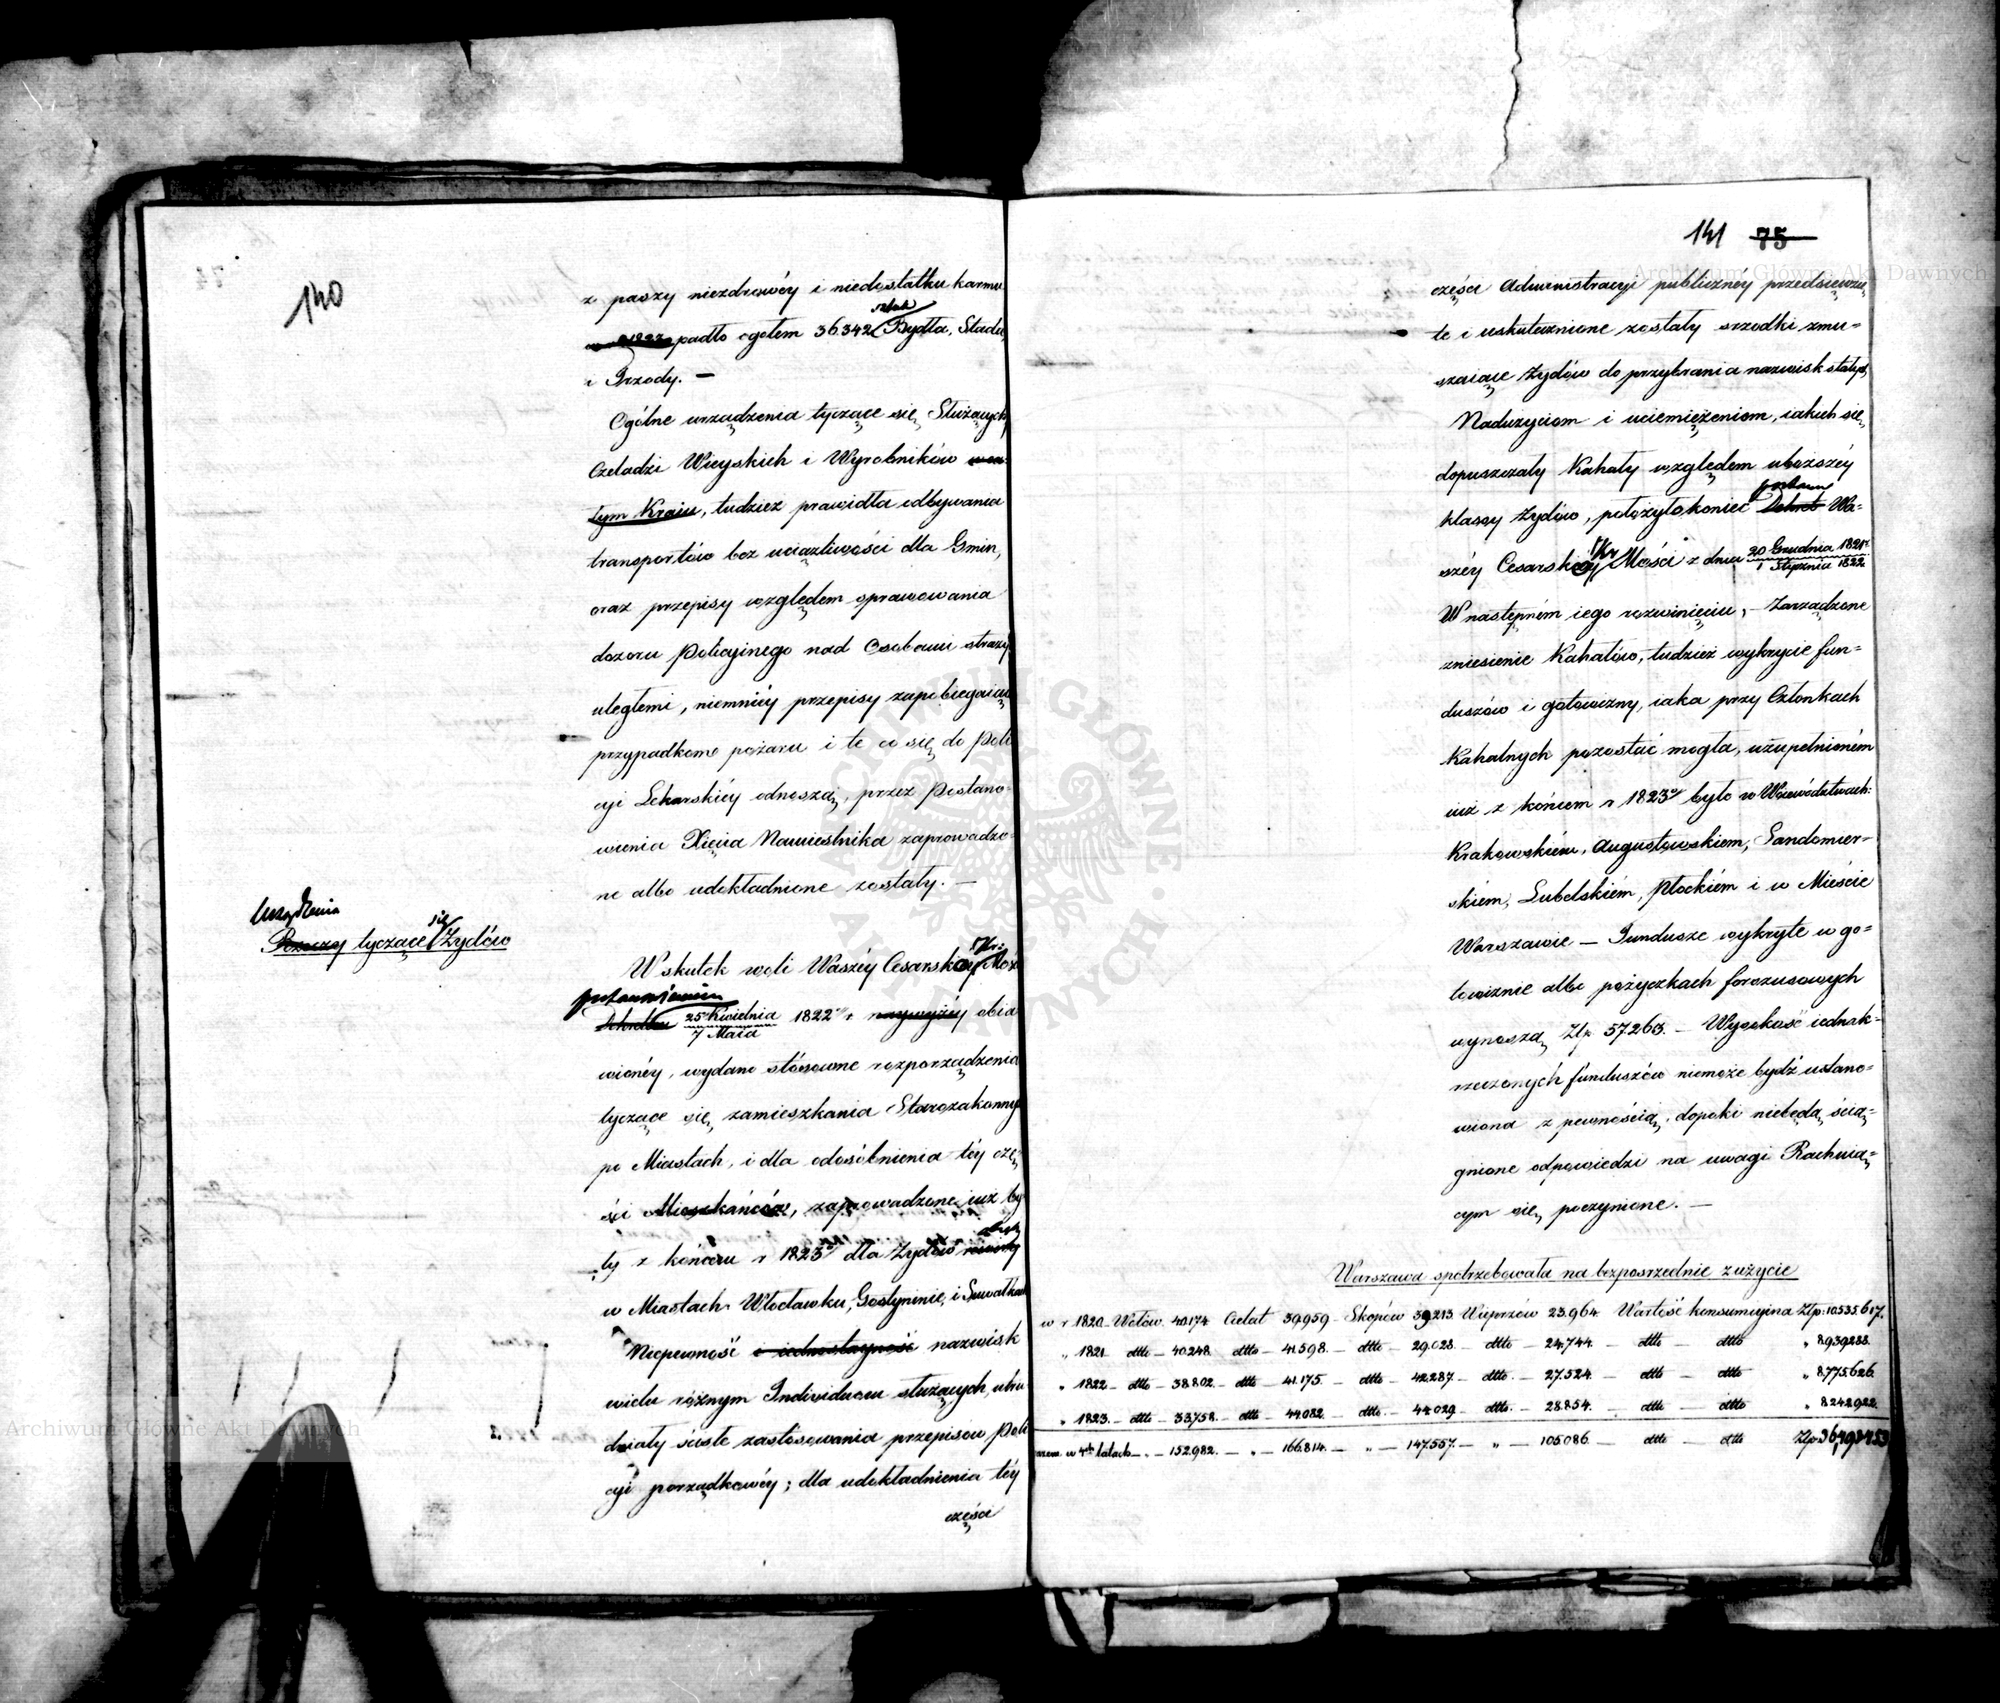 140
z paszy niezdrowéy i niedostatku karmu
w r 1823 padło ogółem 36.342 sztuk Bydła, Stadu,
i Trzody. —
Ogólne urządzenia tyczące się Służących,
Czeladzi Wieyskich i Wyrobników w ca-
łym Kraiu, tudzież prawidła odbywania
transportów bez uciążliwości dla Gmin,
oraz przepisy względem sprawowania
dozoru Policyinego nad Osobami straży
uległemi, niemniéy przepisy zapobiegaiące
przypadkom pożaru i te co się do Poli
cyi Lekarskiéy odnoszą, przez Postano-
wienia Xięcia Namiestnika zaprowadzo-
ne albo udokładnione zostały. —
Urządzenia
Rzeczy tyczące się Żydów
W skutek woli Waszéy Cesarskiéy i Kr: Mości
postanowieniem
Dekretem 25 Kwietnia / 7 Maia 1822 r naywyżéy obia
wionéy, wydano stósowne rozporządzenia
tyczące się zamieszkania Starozakonnych
po Miastach, i dla odosóbnienia téy czę
ści Mieszkańców, zaprowadzone iuż by
ły z końcem r 1823 dla Żydów rewiry
w Miastach Włocławku, Gostyninie, i Suwałkach
Niepewność i iednostayność nazwisk
wielu różnym Individuom służących, utru
dniały ścisłe zastosowania przepisow Poli
cyi porządkowéy; dla udokładnienia téy
części
141 75
części Administracyi publiczney przedsięwzię
te i uskutecznione zostały srzodki zmu-
szaiące Żydów do przybrania nazwisk stałych,
Nadużyciom i uciemiężeniom, iakich się
dopuszczały Kahały względem uboższéy
klassy Żydów, położyło koniec Dekret postanow Wa-
széy Cesarskiéy i Kr Mości z dnia 20 Grudnia 1821 / 1 Stycznia 1822
W następném iego rozwinięciu, — Zarządzone
zniesienie Kahałów, tudzież wykrycie fun-
duszów i gotowizny, iaka przy Członkach
Kahalnych pozostać mogła, uzupełnioném
iuż z końcem r 1823 było w Woiewództwach:
Krakowskiém, Augustowskiem, Sandomier-
skiém, Lubelskiém, Płockiém i w Mieście
Warszawie — Fundusze wykryte w go-
towiznie albo pożyczkach forszusowych
wynoszą Złp 57263. — Wysokość iednak-
rzeczonych funduszów niemoże bydź ustano-
wiona z pewnością, dopoki niebędą ścią-
gnione odpowiedzi na uwagi Rachuią-
cym się poczynione. —
Warszawa spotrzebowała na bezposrzednie zużycie
w r 1820 Wołów 40174 Cieląt 39959 Skopów 39213 Wieprzów 23.964 Wartość konsumcyina Złp: 10535617.
„ 1821 dtto — 40248 dtto — 41.598. — dtto — 29.028. — dtto — 24,744. — dtto — dtto „ 8939288.
„ 1822 — dtto — 38.802. — dtto — 41.175. — dtto — 42287. — dtto. — 27.524. — dtto — dtto „ 8.775.626.
„ 1823. — dtto — 33,758. — dtto — 44082. — dtto — 44029. — dtto. — 28.854. — dtto — dtto „ 8242922.
razem w 4ch latach — „ — 152982. — „ — 166.814. — „ — 147.557. — „ — 105086. — dtto — dtto Złp 36,493453